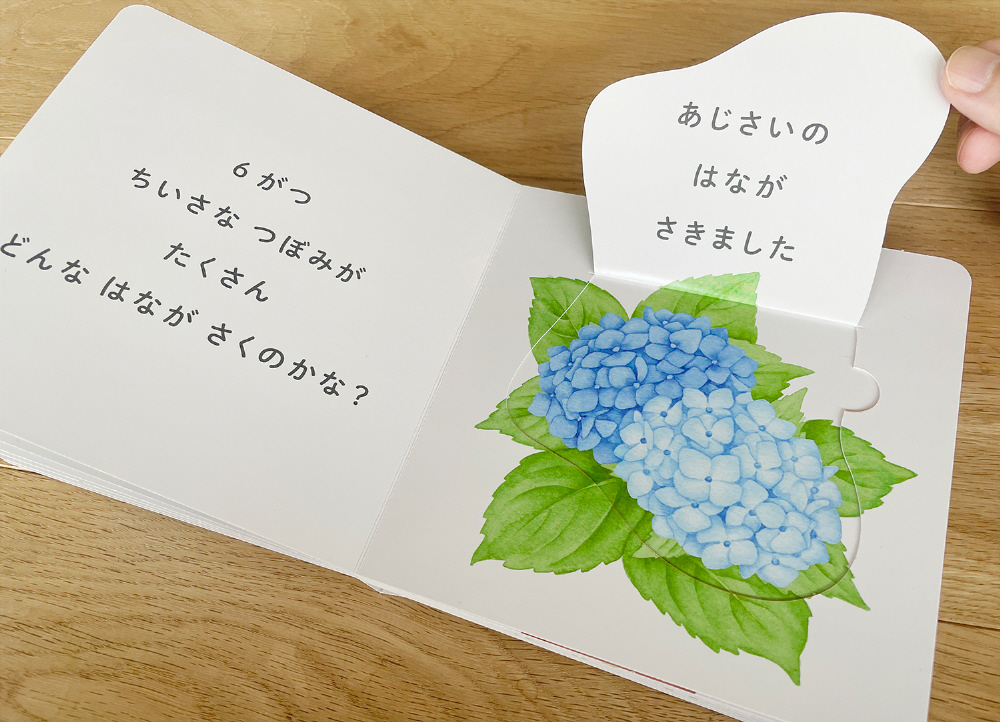 6がつ
ちいさな つぼみが
たくさん
どんな はなが さくのかな？
あじさいの
はなが
さきました